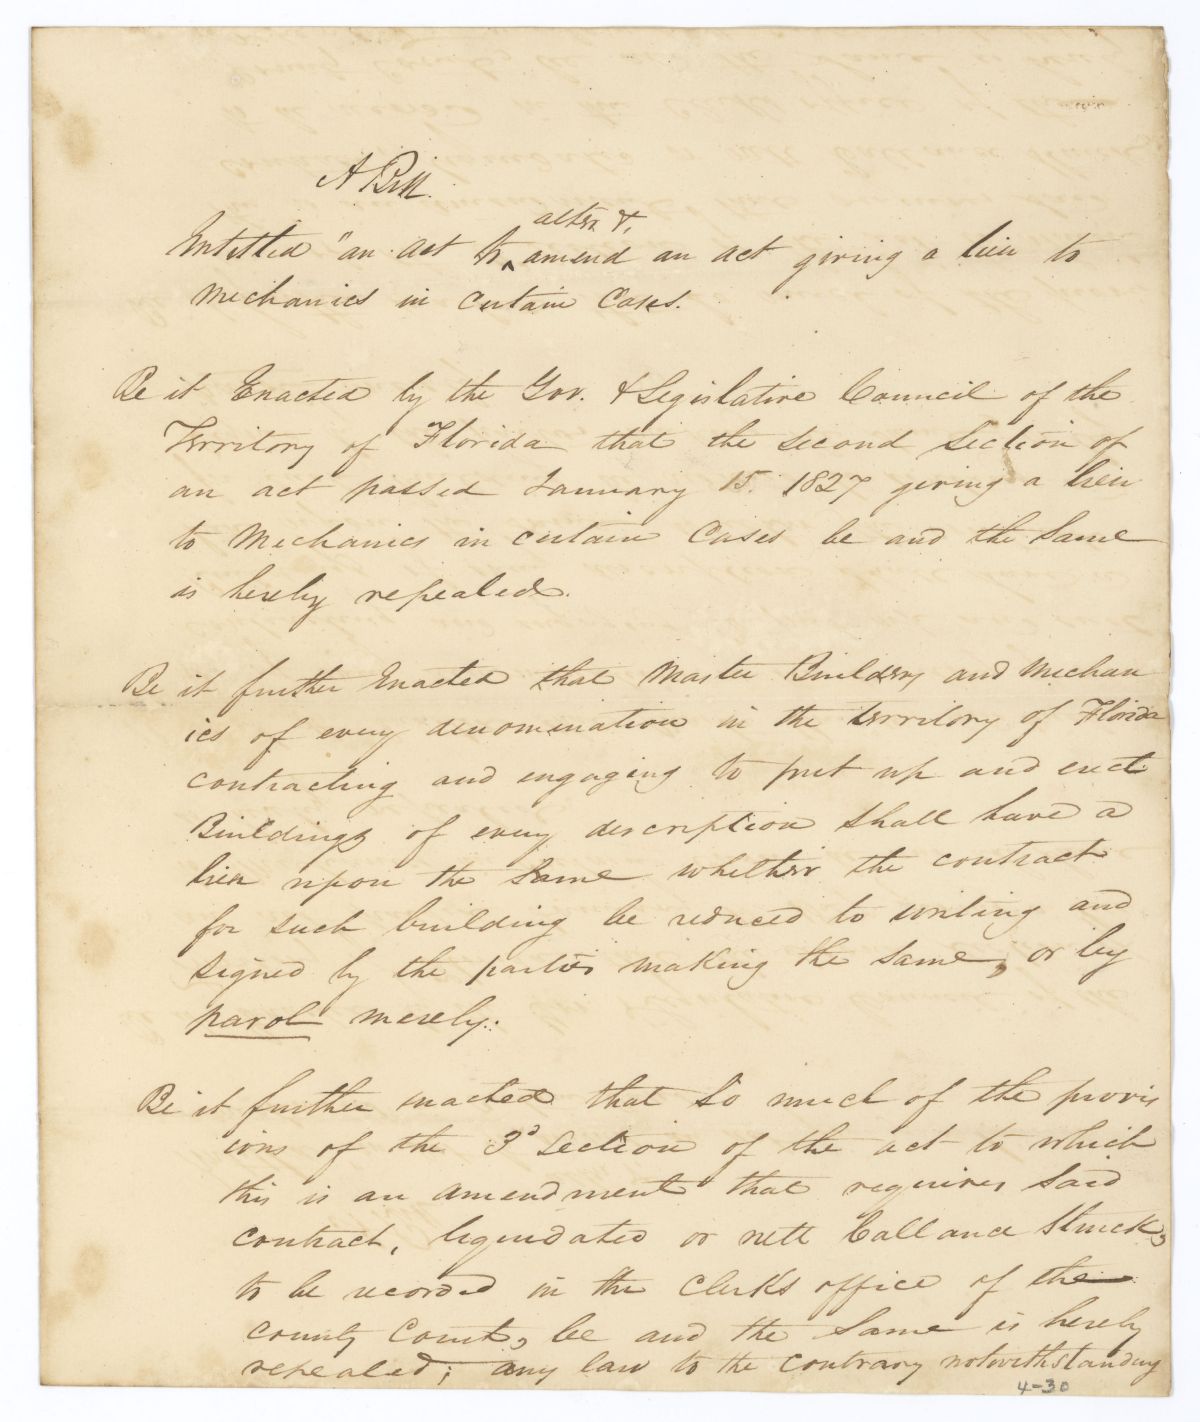 A Bill.
alter &
Intitled "an act to ‸ amend an act giving a lien to
Mechanics in certain Cases.
Be it Enacted by the Gov. & Legislative Council of the
Territory of Florida that the second Section of
an act passed January 15. 1827 giving a lien
to Mechanics in certain Cases be and the Same
is hereby repealed.
Be it further Enacted that Master Builders and Mechan
ics of every denomination in the territory of Florida
contracting and engaging to put up and erect
Buildings of every description shall have a
lien upon the Same whether the contract
for such building be reduced to writing and
signed by the parties making the same, or by
parol merely.
Be it further enacted that So much of the provis
ions of the 3d Section of the act to which
this is an amendment that requires Said
contract, liquidated or nett Ballance Struck,
to be recorded in the Clerks office of the
county Court, be and the Same is hereby
repealed; any law to the contrary notwithstanding
4-30